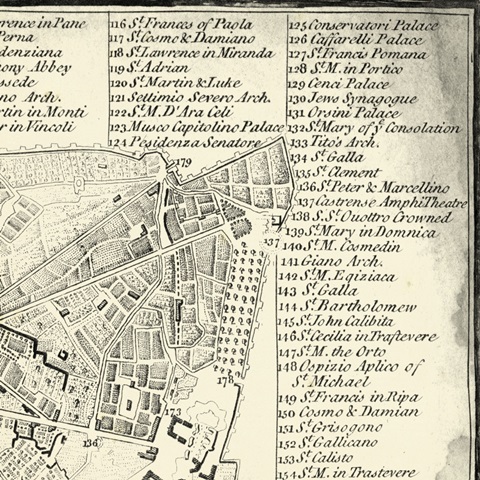 rence in Pane
Perna
denziana
ony Abbey
ssede
no Arch.
rtin in Monti
r in Vincoli
116 St. Frances of Paola
117 St. Cosmo & Damiano
118 St. Lawrence in Miranda
119 St. Adrian
120 St. Martin & Luke
121 Settimio Severo Arch.
122 St. M. D'Ara Celi
123 Museo Capitolino Palace
124 Pesidenza Senatore
125 Conservatori Palace
126 Caffarelli Palace
127 St. Francis Pomana
128 St. M. in Portico
129 Cenci Palace
130 Jews Synagogue
131 Orsini Palace
132 St. Mary of ye Consolation
133 Tito's Arch.
134 St. Galla
135 St. Clement
136 St. Peter & Marcellino
137 Castrense AmphiTheatre
138 S. St. Quottro Crowned
139 St. Mary in Domnica
140 St. M. Cosmedin
141 Giano Arch.
142 St. M. Egiziaca
143 St. Galla
144 St. Bartholomew
145 St. John Calibita
146 St. Cecilia in Trastevere
147 St. M. the Orto
148 Ospizio Aplico of
St. Michael
149 St. Francis in Ripa
150 Cosmo & Damian
151 St. Grisogono
152 St. Gallicano
153 St. Calisto
154 St. M. in Trastevere
179
137
178
173
136